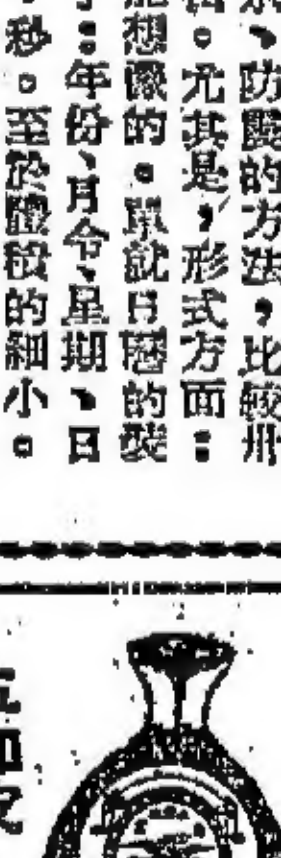 、防震的方法，比較
。尤其是，形式方面：
想像的。單就日曆的裝
：年份、月令、星期、日
秒。至於體積的細小。